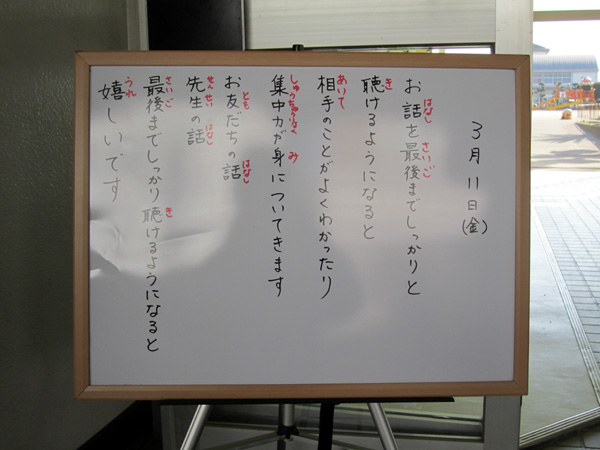 3月11日(金)
お話を最後までしっかりと
はなし さいご
聴けるようになると
き
相手のことがよくわかったり
あいて
集中力が身についてきます
しゅうちゅうりょく み
お友だちの話
とも はなし
先生の話
せんせい はなし
最後までしっかり聴けるようになると
さいご き
嬉しいです
うれ